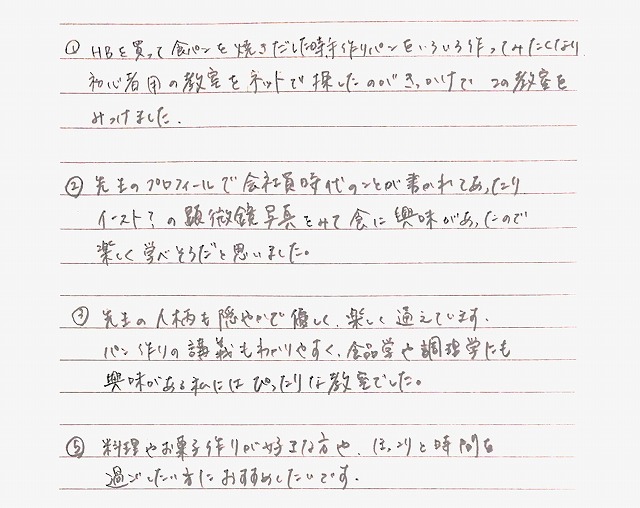 ① HBを買って食パンを焼きだした時手作りパンをいろいろ作ってみたくなり
初心者用の教室をネットで探したのがきっかけでこの教室を
みつけました.
② 先生のプロフィールで会社員時代のことが書かれてあったり
イースト?の顕微鏡写真をみて食に興味があったので
楽しく学べそうだと思いました。
③ 先生の人柄も隠やかで優しく、楽しく通えています.
パン作りの講義もわかりやすく、食品学や調理学にも
興味がある私にはぴったりな教室でした。
⑤ 料理やお菓子作りが好きな方や、ほっこりと時間を
過ごしたい方におすすめしたいです.